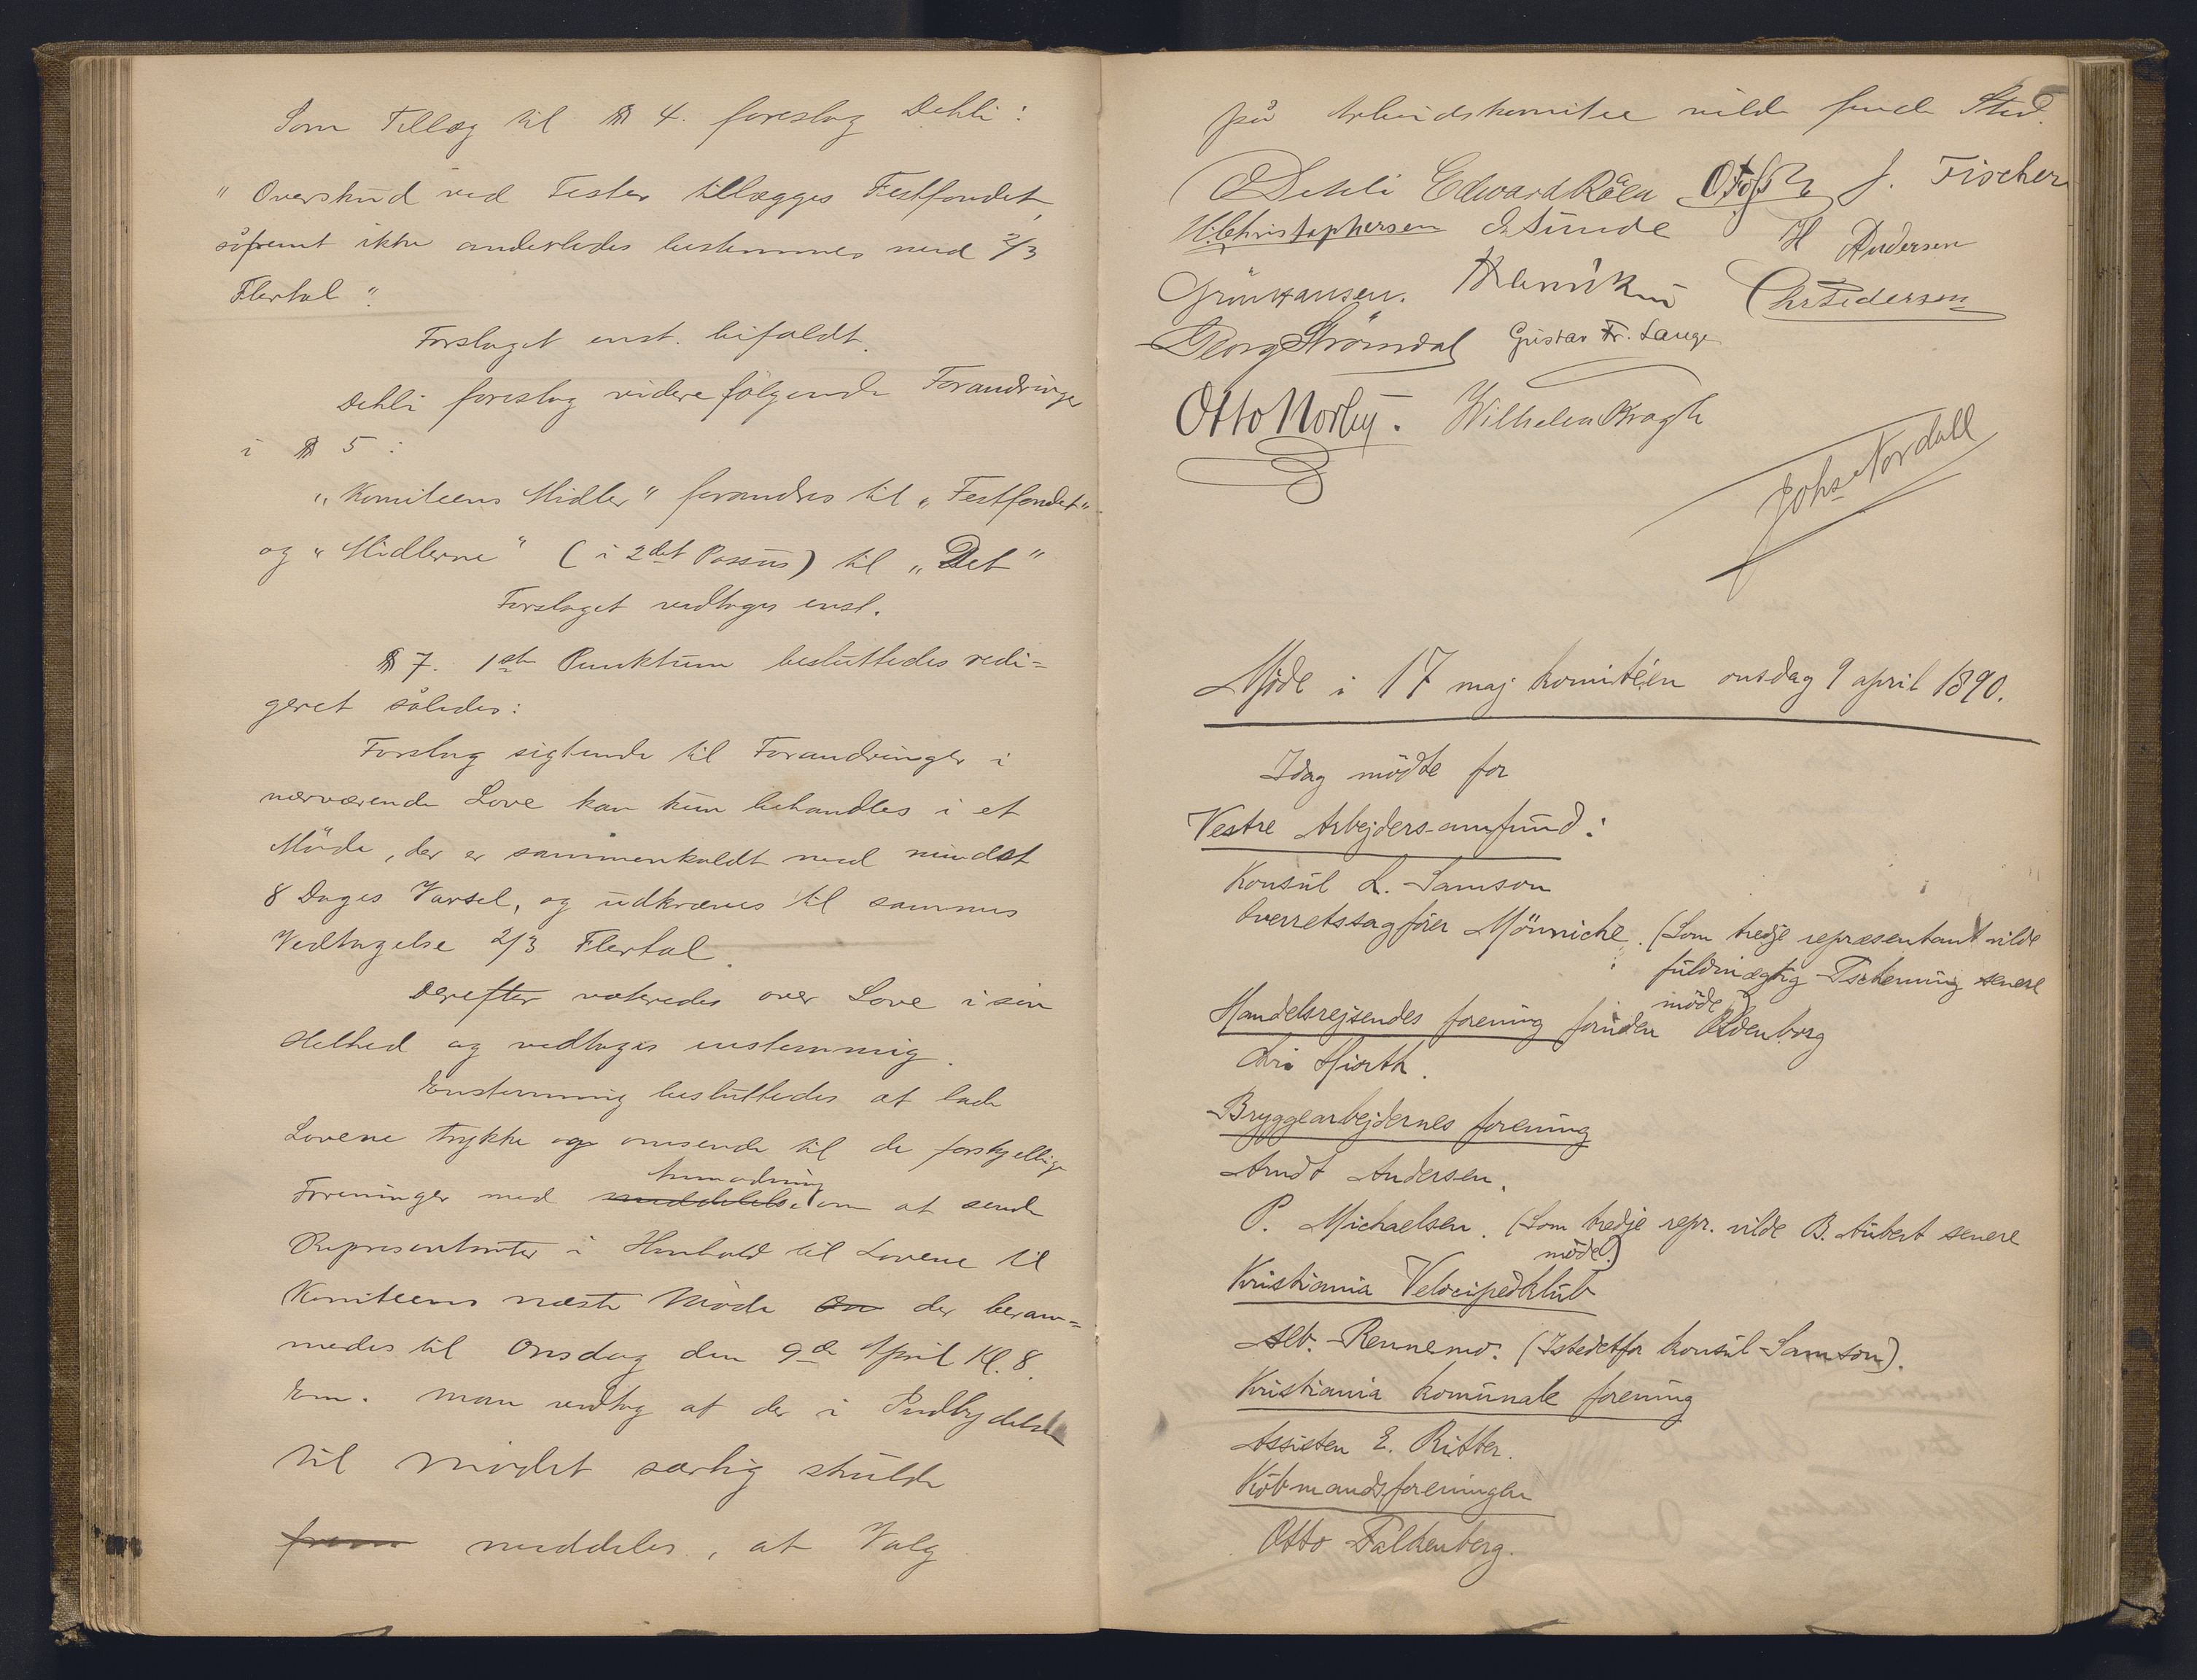 Som Tillæg til § 4. foreslog Dehli:
" Overskud ved Fester tillægges Festfondet,
såfremt ikke anderledes bestemmes med 2/3
Flertal "
Forslaget enst. bifaldt.
Dehli foreslog videre følgende Forandringer
i § 5:
"Komiteens Midler" forandres til "Festfondet"
og "Midlerne" (i 2det Passus) til "Det"
Forslaget vedtoges enst.
§ 7. 1ste Punktum besluttedes redi=
geret således:
Forslag sigtende til Forandringer i
nærværende Love kan kun behandles i et
Møde, der er sammenkaldt med mindst
8 Dages Varsel, og udkræves til sammes
Vedtagelse 2/3 Flertal.
Derefter voteredes over Love i sin
Helhed og vedtoges enstemmig.
Enstemmig besluttedes at lade
Lovene trykke og omsende til de forskjellige
Anmodning
Foreninger med meddelelse om at sende
Representanter i Henhold til Lovene til
Komiteens næste Møde der beram=
medes til Onsdag den 9de April Kl. 8.
Em. Man vedtog at der i Indbydelse
til mødet særlig skulde
frem meddeles, at Valg
på Arbeidskomitee vilde finde Sted.
O Dehli Edward Röen J. Fischer
H. Christophersen Sunde H Andersen
Grønhansen. Henriksen Chr Pedersen
Georg Strömdal Gustav Fr. Lange
Otto Norby. Wilhelm Kragh
Johs Nordall
Møde i 17 maj komitéen onsdag 9 april 1890.
Idag mødte for
Vestre Arbejdersamfund:
Konsul L. Samson
Overretssagfører Mönniche. (Som tredje repræsentant vilde
fuldmægtig Tscherning senere
møde)
Handelsrejsendes forening foruden Oldenborg
Chr. Hiorth.
Bryggearbejdernes forening
Arndt Andersen.
P. Michaelsen. (Som tredje repr. vilde B. Aubert senere
møde.)
Kristiania Velocipedklub
Alb. Rennemo. (Istedetfor konsul Samson).
Kristiania komunale forening
Assisten E. Ritter.
Købmandsforeningen
Otto Falkenberg.